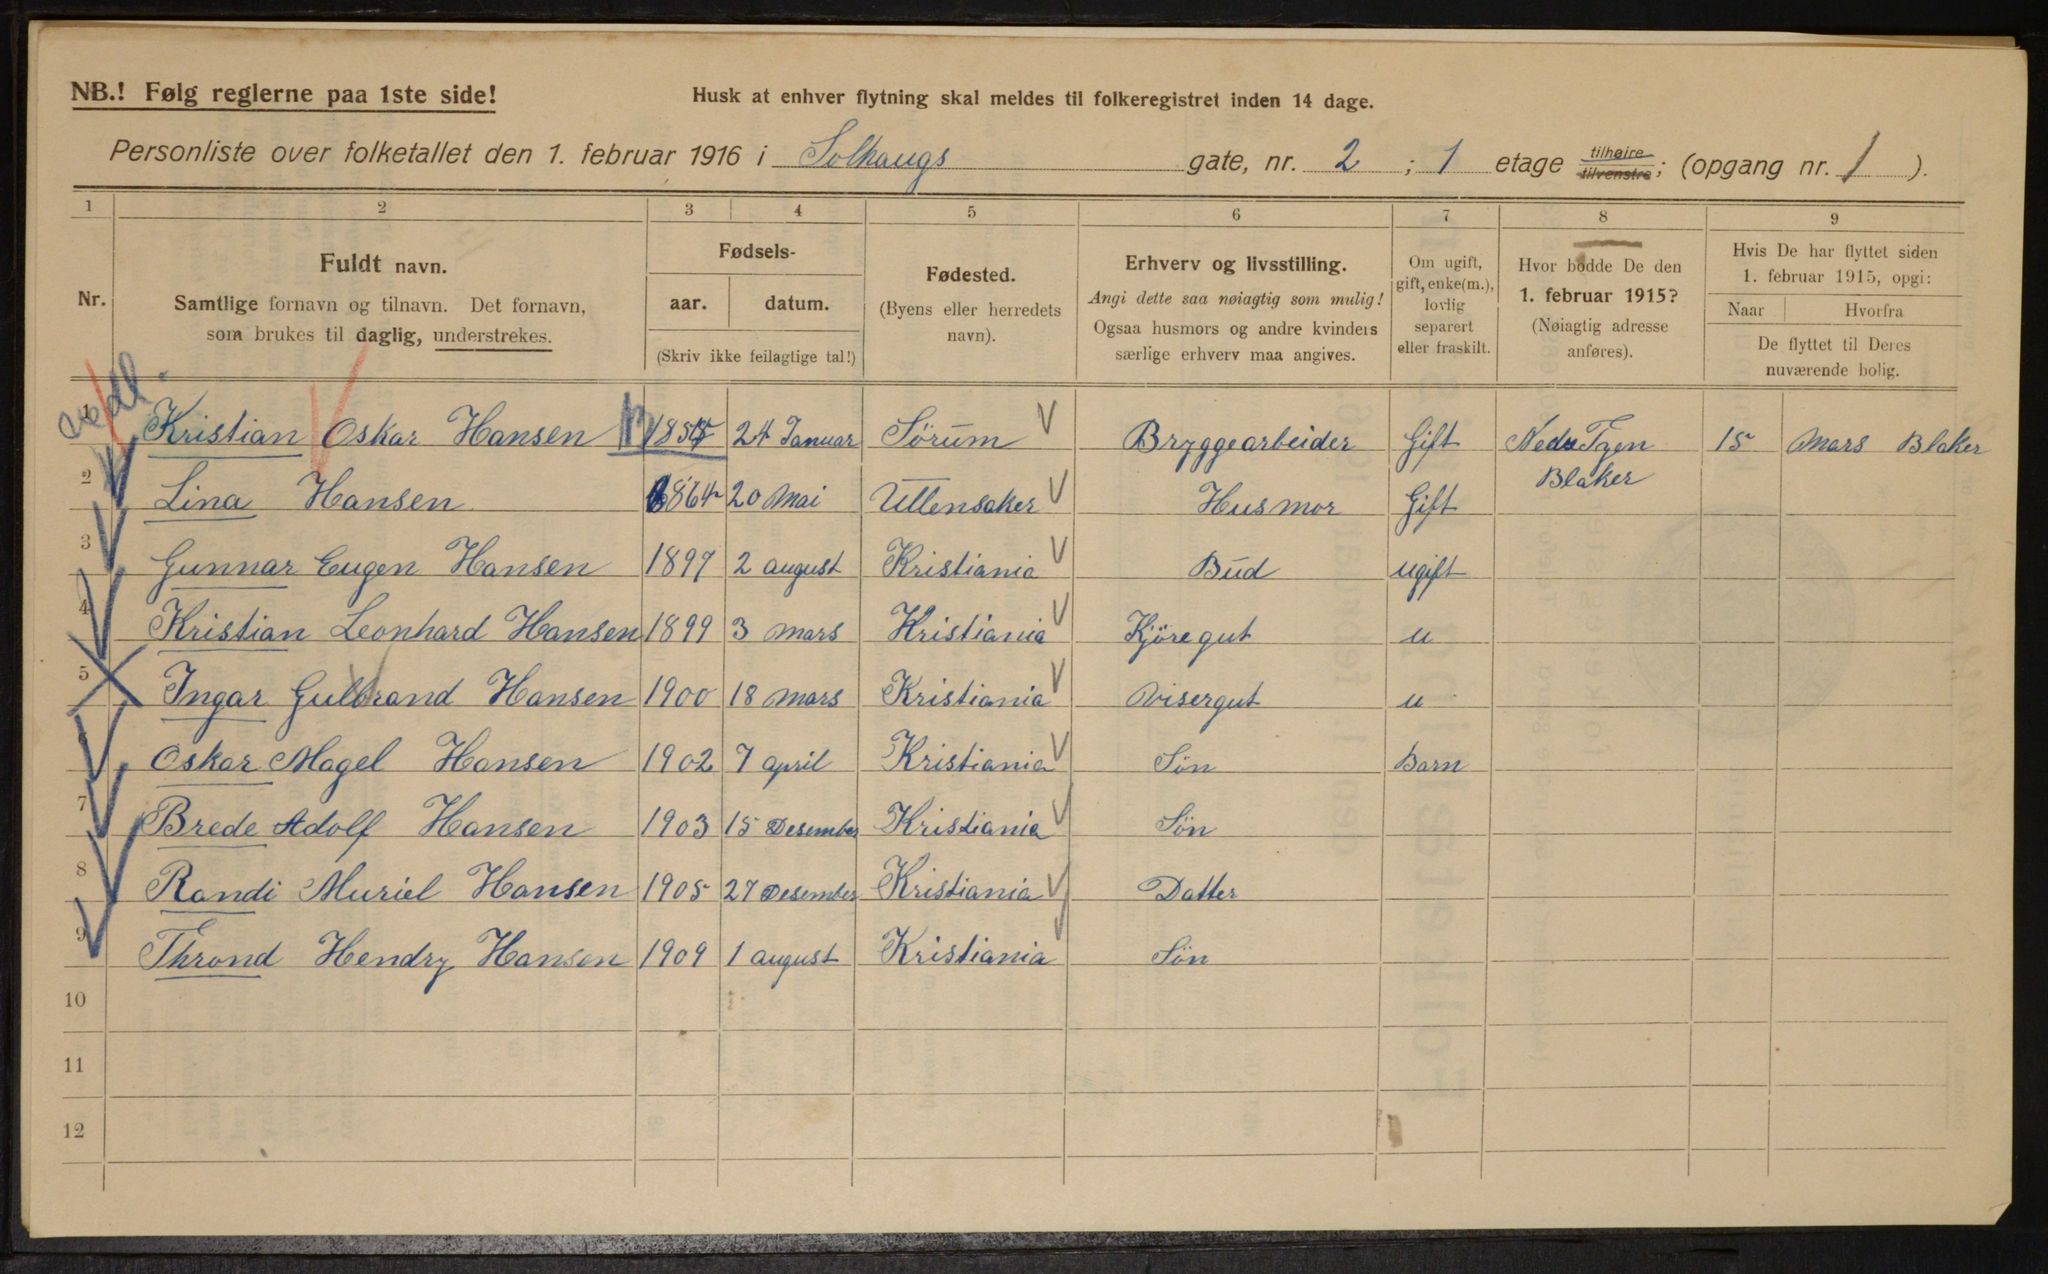 NB.! Følg reglerne paa 1ste side!
Husk at enhver flytning skal meldes til folkeregistret inden 14 dage.
Personliste over folketallet den 1. februar 1916 i Solhaugs gate, nr. 2 ; 1 etage tilhøire tilvenstre; (opgang nr. 1 ).
1 2 3 4 5 6 7 8 9
Nr.
Fuldt navn.
Samtlige fornavn og tilnavn. Det fornavn,
som brukes til daglig, understrekes.
Fødsels-
aar. datum.
(Skriv ikke feilagtige tal!)
Fødested.
(Byens eller herredets
navn).
Erhverv og livsstilling.
Angi dette saa nøiagtig som mulig!
Ogsaa husmors og andre kvinders
særlige erhverv maa angives.
Om ugift,
gift, enke(m.),
lovlig
separert
eller fraskilt.
Hvor bodde De den
1. februar 1915?
(Nøiagtig adresse
anføres).
Hvis De har flyttet siden
1. februar 1915, opgi:
Naar Hvorfra
De flyttet til Deres
nuværende bolig.
1 Kristian Oskar Hansen 24 Januar Sørum Bryggearbeider Gift 15 Mars Blaker
Blaker
2 Lina Hansen 1864 20 Mai Ullensaker Husmor Gift
3 Gunnar Eugen Hansen 1897 2 august Kristiania Bud ugift
4 Kristian Leonhard Hansen 1899 3 mars Kristiania Kjöregut u
5 Ingar Gulbrand Hansen 1900 18 Mars Kristiania Visergut u
6 Oskar Magel Hansen 1902 7 april Kristiania Søn Barn
7 Brede Adolf Hansen 1903 15 Desember Kristiania Søn
8 Randi Muriel Hansen 1905 27 Desember Kristiania Datter
9 Thrond Hendry Hansen 1909 1 august Kristiania Søn
10
11
12